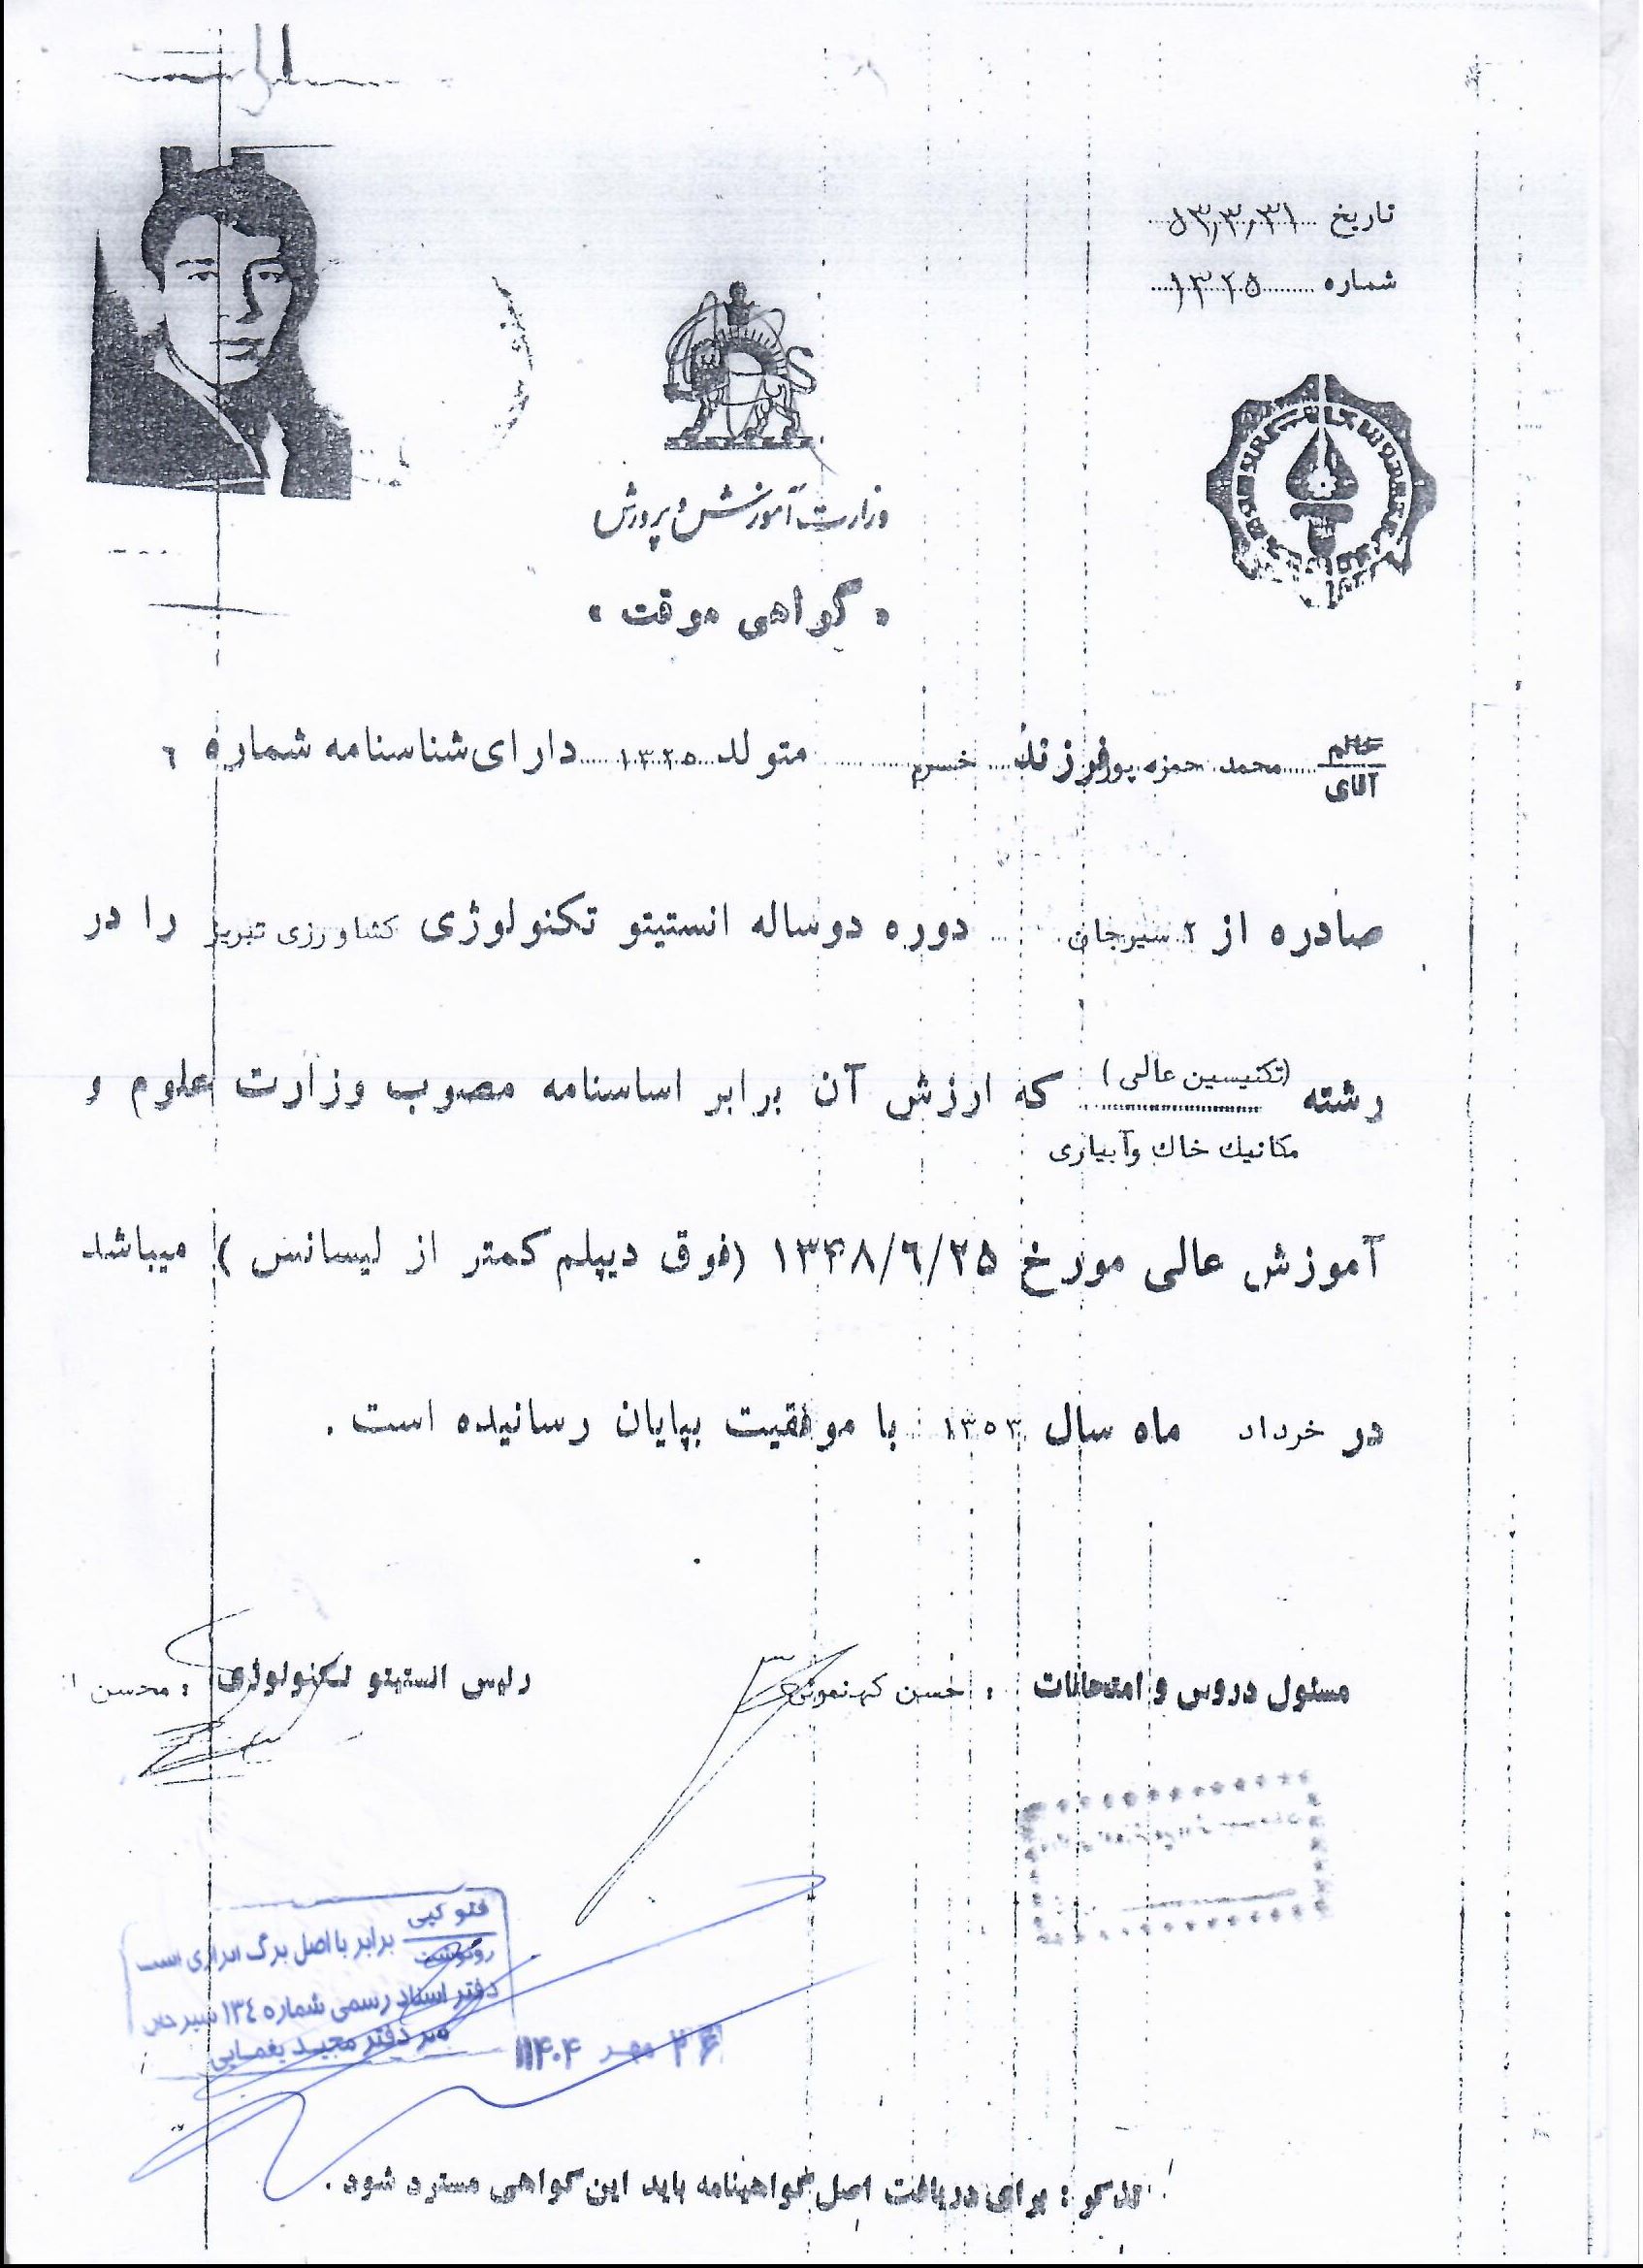 تاریخ ۵۳,۳,۳۱
شماره ۱۳۲۵
وزارت آموزش و پرورش
« گواهی موقت »
خانم
آقای محمد حمزه پور فرزند خسرم متولد ۱۳۲۵ دارای شناسنامه شماره ٦
صادره از ۲ سیرجان دوره دوساله انستیتو تکنولوژی کشاورزی تبریز را در
رشته (تکنیسین عالی) که ارزش آن برابر اساسنامه مصوب وزارت علوم و
مکانیك خاك وآبیاری
آموزش عالی مورخ ۱۳۴۸/٦/۲۵ (فوق دیپلم کمتر از لیسانس) میباشد
در خرداد ماه سال ۱۳۵۳ با موفقیت بپایان رسانیده است .
مسئول دروس و امتحانات : حسن کهنموئی رئیس انستیتو تکنولوژی : محسن
فتو کپی
رونوشت برابر با اصل برگ ابرازی است
دفتر اسناد رسمی شماره ۱۳٤ سیرجان
سر دفتر مجید یغمایی
۲۶ مهر ۱۴۰۴
تذکر : برای دریافت اصل گواهینامه باید این گواهی مسترد شود .